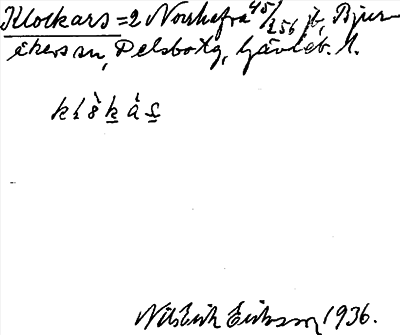 Klockars = 2 Norrhafra 45/256 jb, Bjur-
åkers sn, Delsbo tg, Gävleb. l.
Nils Erik Eriksson 1936.